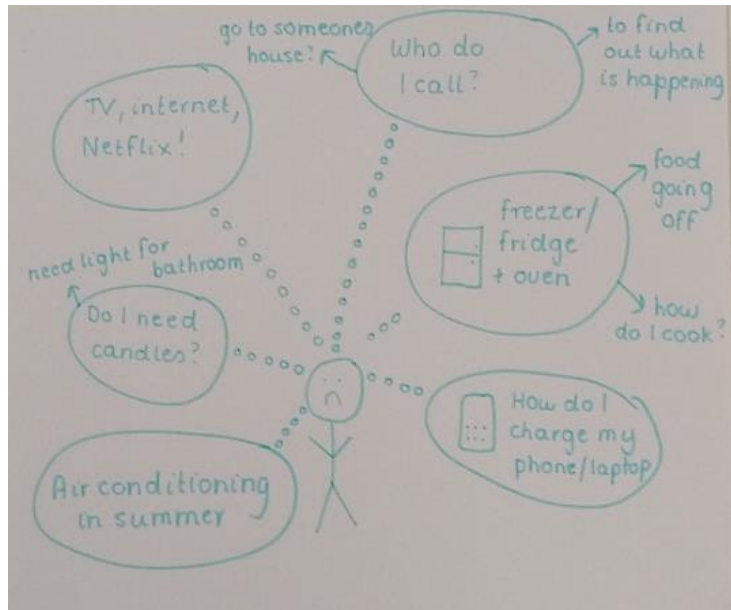 go to someones
house?
Who do
I call?
to find
out what
is happening
TV, internet,
Netflix!
freezer/
fridge
+ oven
food
going
off
how
do I cook?
need light for
bathroom
Do I need
candles?
How do I
charge my
phone/laptop
Air conditioning
in summer